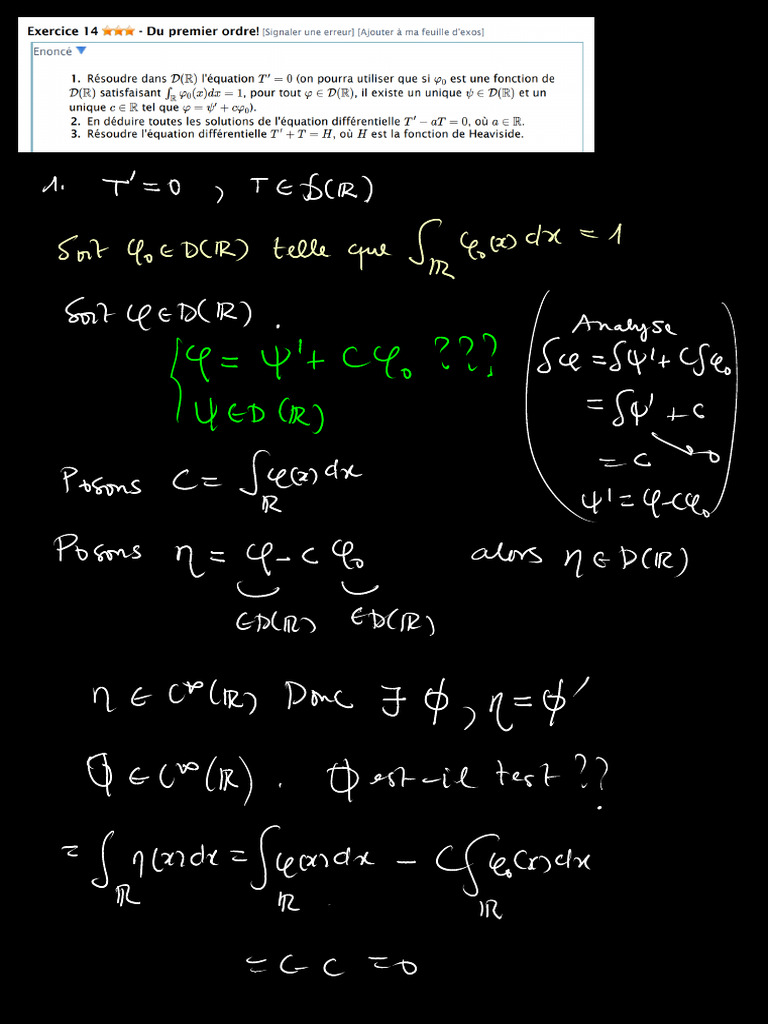 Exercice 14 ★★★ - Du premier ordre! [Signaler une erreur] [Ajouter à ma feuille d'exos]
Enoncé ▼
1. Résoudre dans D(ℝ) l'équation T′ = 0 (on pourra utiliser que si φ₀ est une fonction de
D(ℝ) satisfaisant ∫_ℝ φ₀(x)dx = 1, pour tout φ ∈ D(ℝ), il existe un unique ψ ∈ D(ℝ) et un
unique c ∈ ℝ tel que φ = ψ′ + cφ₀).
2. En déduire toutes les solutions de l'équation différentielle T′ − aT = 0, où a ∈ ℝ.
3. Résoudre l'équation différentielle T′ + T = H, où H est la fonction de Heaviside.
1. T′ = 0 , T ∈ D(ℝ)
Soit φ₀ ∈ D(ℝ) telle que ∫_ℝ φ₀(x) dx = 1
Soit φ ∈ D(ℝ) .
φ = ψ′ + Cφ₀ ???
ψ ∈ D(ℝ)
Analyse
∫φ = ∫ψ′ + C∫φ₀
= ∫ψ′ + c
→ 0
= c
ψ′ = φ − cφ₀
Posons C = ∫_ℝ φ(x) dx
Posons η = φ − c φ₀ alors η ∈ D(ℝ)
∈D(ℝ) ∈D(ℝ)
η ∈ C^∞(ℝ) Donc ∃ ϕ, η = ϕ′
ϕ ∈ C^∞(ℝ) . ϕ est-il test ??
= ∫_ℝ η(x)dx = ∫_ℝ φ(x)dx − C∫_ℝ φ₀(x)dx
= C − C = 0